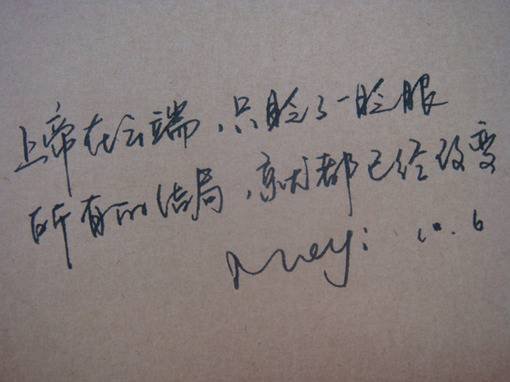 上帝在云端，只眨了一眨眼
所有的结局，就都已经改变
10.6